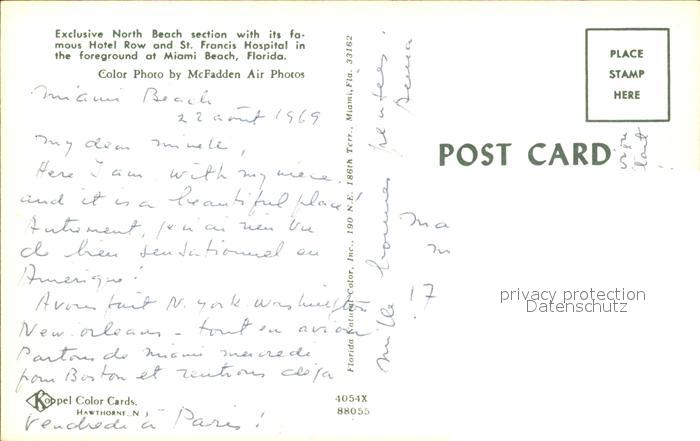 Exclusive North Beach section with its fa-
mous Hotel Row and St. Francis Hospital in
the foreground at Miami Beach, Florida.
Color Photo by McFadden Air Photos
PLACE
STAMP
HERE
POST CARD
Miami Beach
22 août 1969
My dear
Here I am with my niece
and it is a beautiful place!
Autrement, je n'ai rien vu
de bien sensationnel en
Amérique!
Avons fait N. York Washington
New Orleans - tout en avion
Partons de Miami mercredi
pour Boston et rentrons déjà
vendredi à Paris!
mille bonnes pensées!
Florida Natural Color, Inc., 190 N.E. 186th Terr., Miami, Fla. 33162
Ma
17
privacy protection
Datenschutz
Koppel Color Cards.
HAWTHORNE, N J
4054X
88055